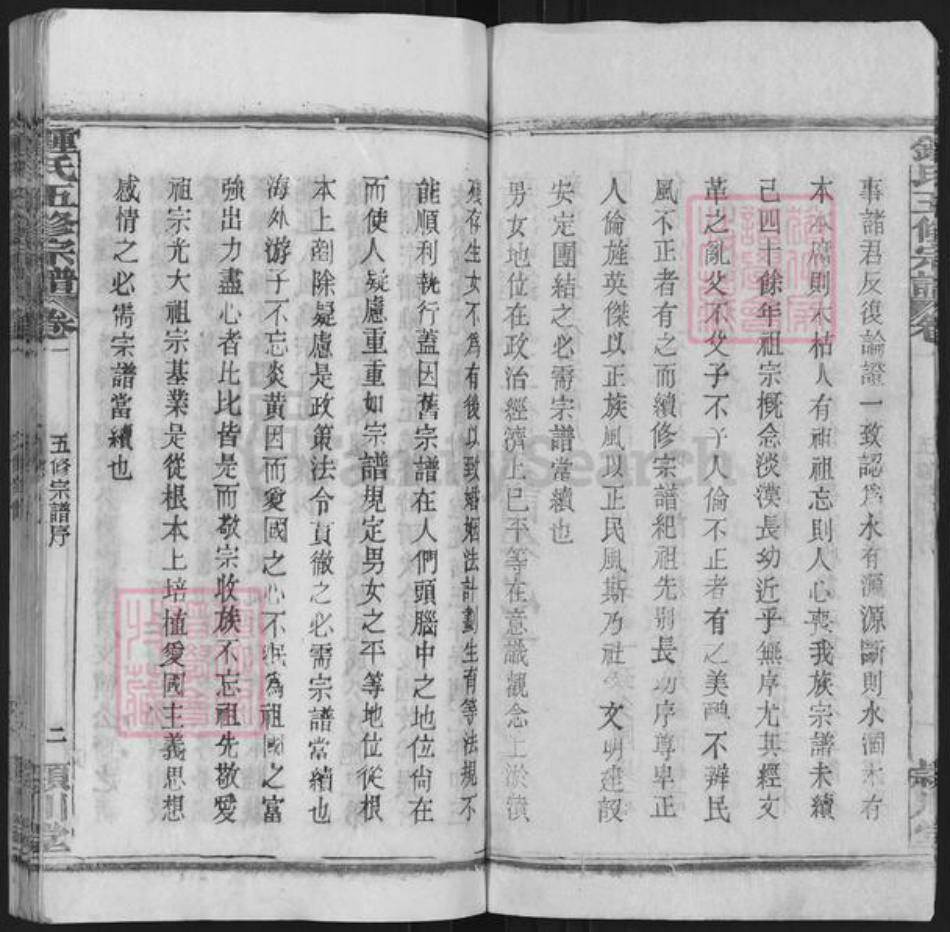 事諸君反復論證一致認為水有源源斷則水涸木有
本本腐則木枯人有祖祖忘則人心喪我族宗譜未續
己四十餘年祖宗概念淡漠長幼近乎無序尤其經文
革之亂父不父子不子人倫不正者有之美醜不辨民
風不正者有之而續修宗譜紀祖先別長幼序尊卑正
人倫旌英傑以正族風以正民風斯乃社會文明建設
安定團結之必需宗譜當續也
男女地位在政治經濟上已平等在意識觀念上淤積
殘存生女不為有後以致婚姻法計劃生育等法規不
能順利執行蓋因舊宗譜在人們頭腦中之地位尚在
而使人疑慮重重如宗譜規定男女之平等地位從根
本上剷除疑慮是政策法令貫徹之必需宗譜當續也
海外游子不忘炎黃因而愛國之心不泯為祖國之富
強出力盡心者比比皆是而敬宗收族不忘祖先敬愛
祖宗光大祖宗基業是從根本上培植愛國主義思想
感情之必需宗譜當續也
鍾氏五修宗譜 卷一
五修宗譜序
二
潁川堂
FamilySearch